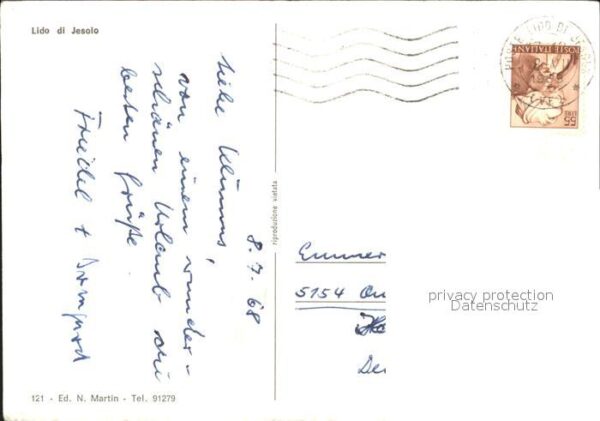 Lido di Jesolo
8.7.68
Liebe
von einem wunder-
schönen Urlaub die
besten Grüße
Friedel +
riproduzione vietata
POSTE ITALIANE
LIRE 55
LIDO DI
5154
privacy protection
Datenschutz
121 - Ed. N. Martin - Tel. 91279